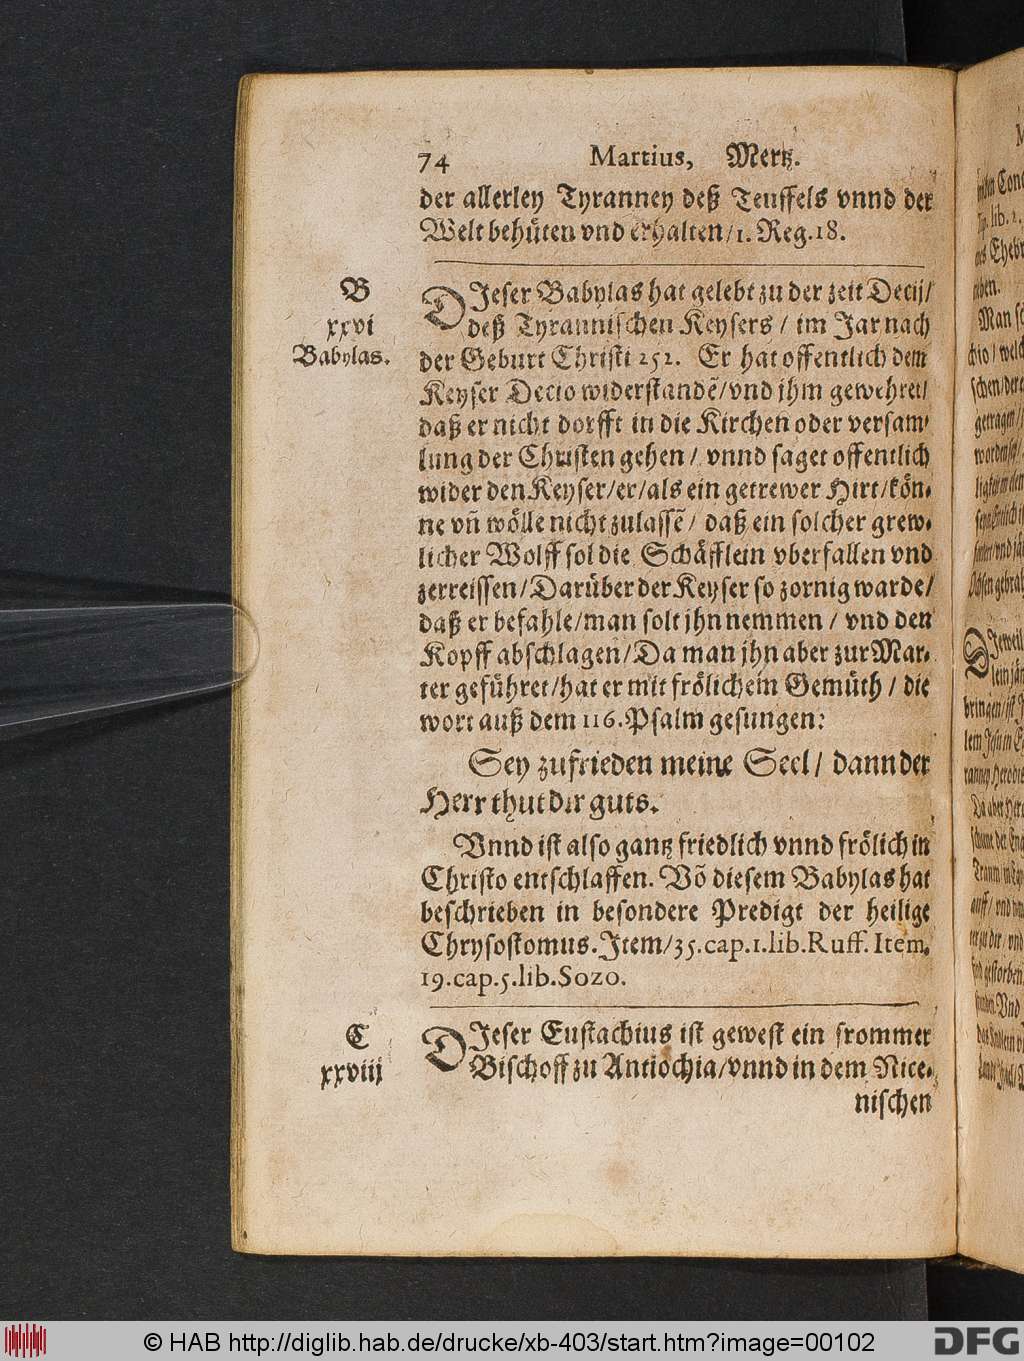 74 Martius, Mertz.
der allerley Tyranney deß Teuffels vnnd der
Welt behüten vnd erhalten/1. Reg.18.
B
xxvi
Babylas.
DIeser Babylas hat gelebt zu der zeit Decij/
deß Tyrannischen Keysers / im Jar nach
der Geburt Christi 252. Er hat offentlich dem
Keyser Decio widerstandẽ/vnd jhm gewehret/
daß er nicht dorfft in die Kirchen oder versam-
lung der Christen gehen / vnnd saget offentlich
wider den Keyser/er/als ein getrewer Hirt/kön-
ne vñ wölle nicht zulassẽ / daß ein solcher grew-
licher Wolff sol die Schäfflein vberfallen vnd
zerreissen/Darüber der Keyser so zornig warde/
daß er befahle/man solt jhn nemmen / vnd den
Kopff abschlagen/Da man jhn aber zur Mar-
ter geführet/hat er mit frölichem Gemüth / die
wort auß dem 116.Psalm gesungen:
Sey zufrieden meine Seel / dann der
Herr thut dir guts.
Vnnd ist also gantz friedlich vnnd frölich in
Christo entschlaffen. Võ diesem Babylas hat
beschrieben in besondere Predigt der heilige
Chrysostomus.Item/35.cap.1.lib.Ruff.Item.
19.cap.5.lib.Sozo.
C
xxviij
DIeser Eustachius ist gewest ein frommer
Bischoff zu Antiochia/vnnd in dem Nice-
nischen
© HAB http://diglib.hab.de/drucke/xb-403/start.htm?image=00102
DFG